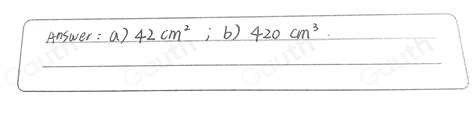 Answer: a) 42 cm² ; b) 420 cm³.